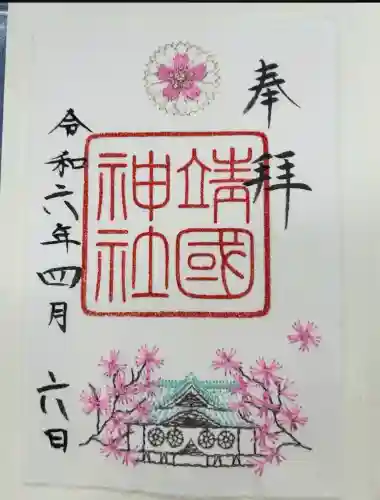 奉拝
靖國
神社
令和六年四月六日